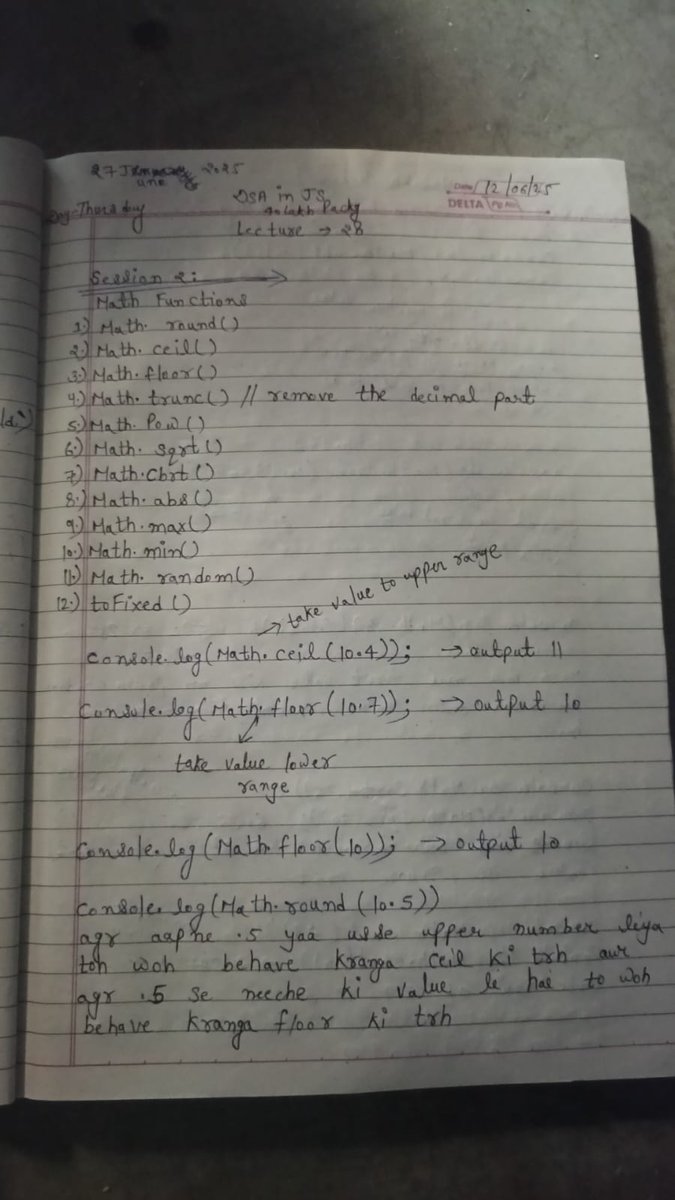 27 June 2025
Date 12/06/25
DSA in JS
DELTA Pg No.
Day-Thursday
Lecture → 28
Session 2:
Math Functions
1.) Math. round()
2.) Math. ceil()
3.) Math. floor()
4.) Math. trunc() // remove the decimal part
5.) Math. Pow()
6.) Math. sqrt()
7.) Math.cbrt()
8.) Math. abs()
9.) Math. max()
10.) Math. min()
11.) Math. random()
12.) toFixed()
→ take value to upper range
Console.log(Math.ceil(10.4)); → output 11
Console.log(Math.floor(10.7)); → output 10
take value lower
range
Console.log(Math floor(10)); → output 10
Console.log(Math.round(10.5))
agr aap ne .5 yaa usse upper number liya
toh woh behave kranga ceil ki trh aur
agr .5 se neeche ki value le hai to woh
behave kranga floor ki trh